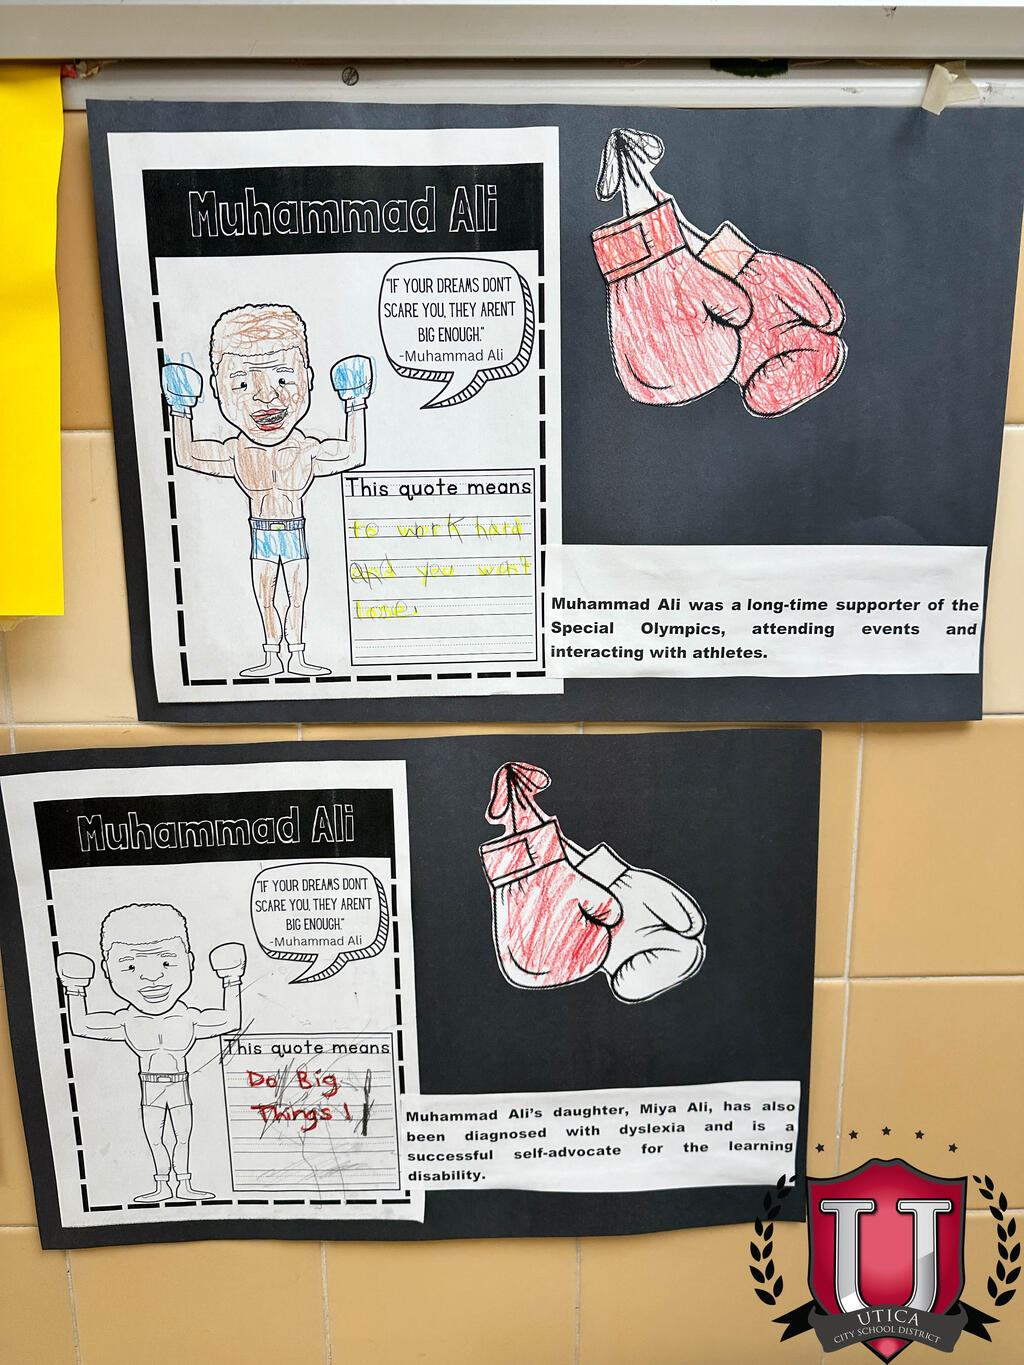 Muhammad Ali
"IF YOUR DREAMS DON'T
SCARE YOU, THEY AREN'T
BIG ENOUGH."
-Muhammad Ali
This quote means
to work hard
and you won't
lose.
Muhammad Ali was a long-time supporter of the
Special Olympics, attending events and
interacting with athletes.
Muhammad Ali
"IF YOUR DREAMS DON'T
SCARE YOU, THEY AREN'T
BIG ENOUGH."
-Muhammad Ali
This quote means
Do Big
Things!
Muhammad Ali's daughter, Miya Ali, has also
been diagnosed with dyslexia and is a
successful self-advocate for the learning
disability.
U
UTICA
CITY SCHOOL DISTRICT